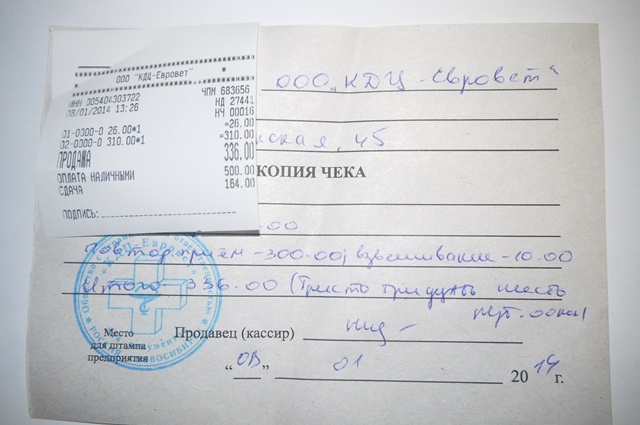 ООО "КДЦ-Евровет"
ЧПМ 683656
ИНН 005404303722 НД 27441
08/01/2014 13:26 НЧ 00016
01-0000-0 26.00*1 =26.00
02-0000-0 310.00*1 =310.00
ПРОДАЖА 336.00
ОПЛАТА НАЛИЧНЫМИ 500.00
СДАЧА 164.00
ПОДПИСЬ:
ООО „КДЦ-Евровет"
ская, 45
КОПИЯ ЧЕКА
00
Повтор. приём -300.00; взвешивание -10.00
Итого- 336.00 (Триста тридцать шесть
руб. 00коп)
Продавец (кассир)
Место
для штампа
предприятия
"08" 01 2014 г.